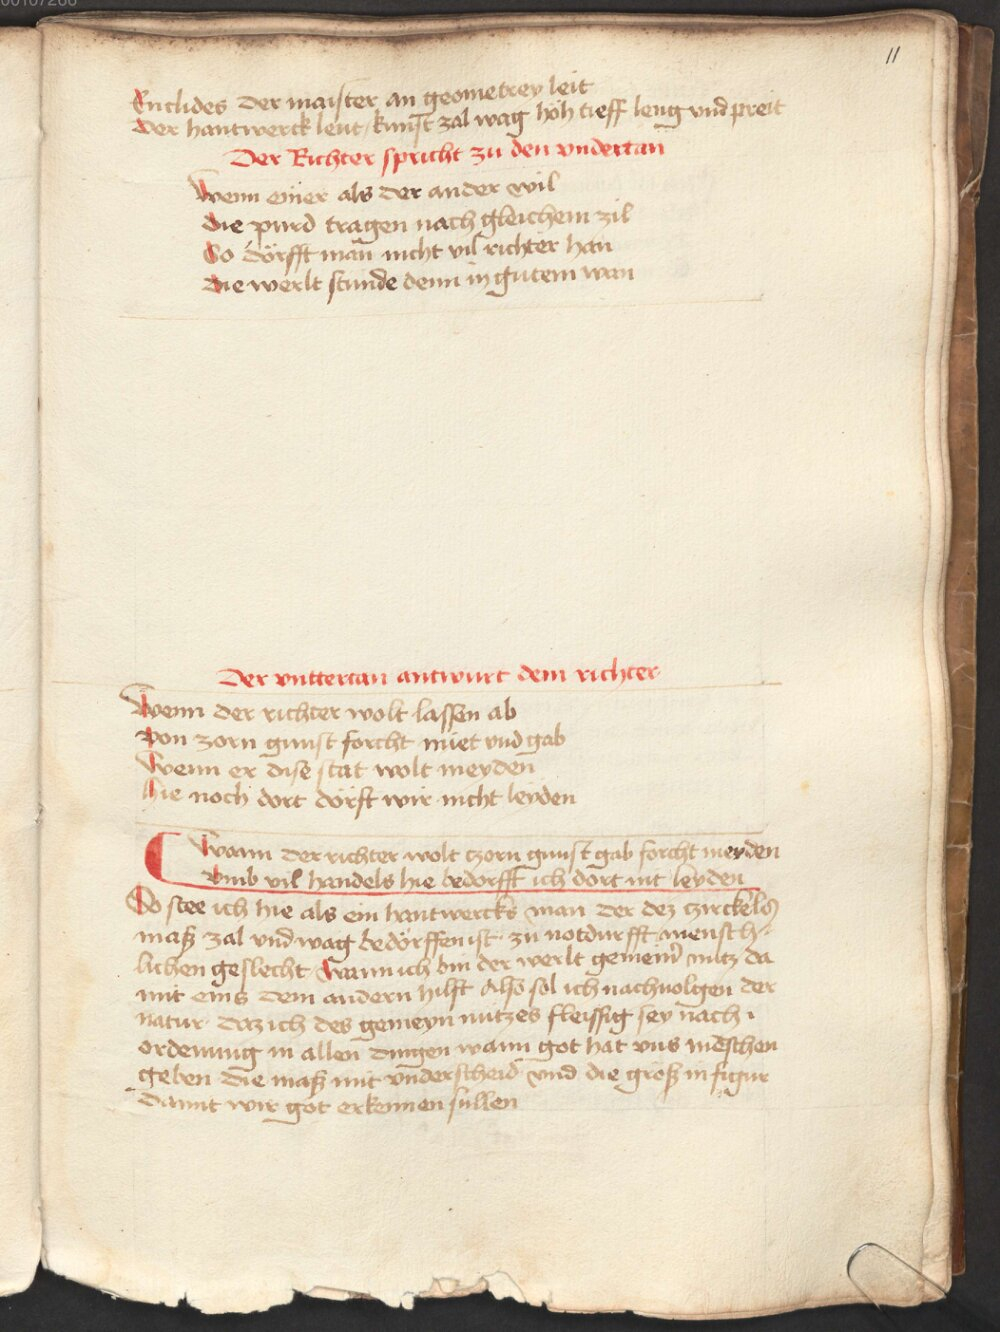 00107266
11
Euclides der maister an geometrey leit
Der hantwerck leut kunst zal wag höh tieff leng vnd preit
Der Richter spricht zu den vndertan
Wenn einer als der ander wil
Die purd tragen nach gleichem zil
So dörfft man nicht vil richter han
Die werlt stunde denn in gutem wan
Der vnttertan antwurt dem richter
Wenn der richter wolt lassen ab
Von zorn gunst forcht miet vnd gab
Wenn er dise stat wolt meyden
Hie noch dort dörft wir nicht leyden
Wann der richter wolt czorn gunst gab forcht meyden
Vmb vil handels hie bedorfft ich dort nit leyden
So stee ich hie als ein hantwercks man der dez czirckels
masz zal vnd wag bedörffen ist zu notdurfft mensch-
lichen geslecht Wann ich bin der werlt gemeiner nutz da
mit eins dem andern hilft Also sol ich nachuolgen der
natur daz ich des gemeyn nutzes fleissig sey nach
ordenung in allen dingen wann got hat vns menschen
geben die masz mit vnderscheid vnd die grosz in figur
Damit wir got erkennen sullen